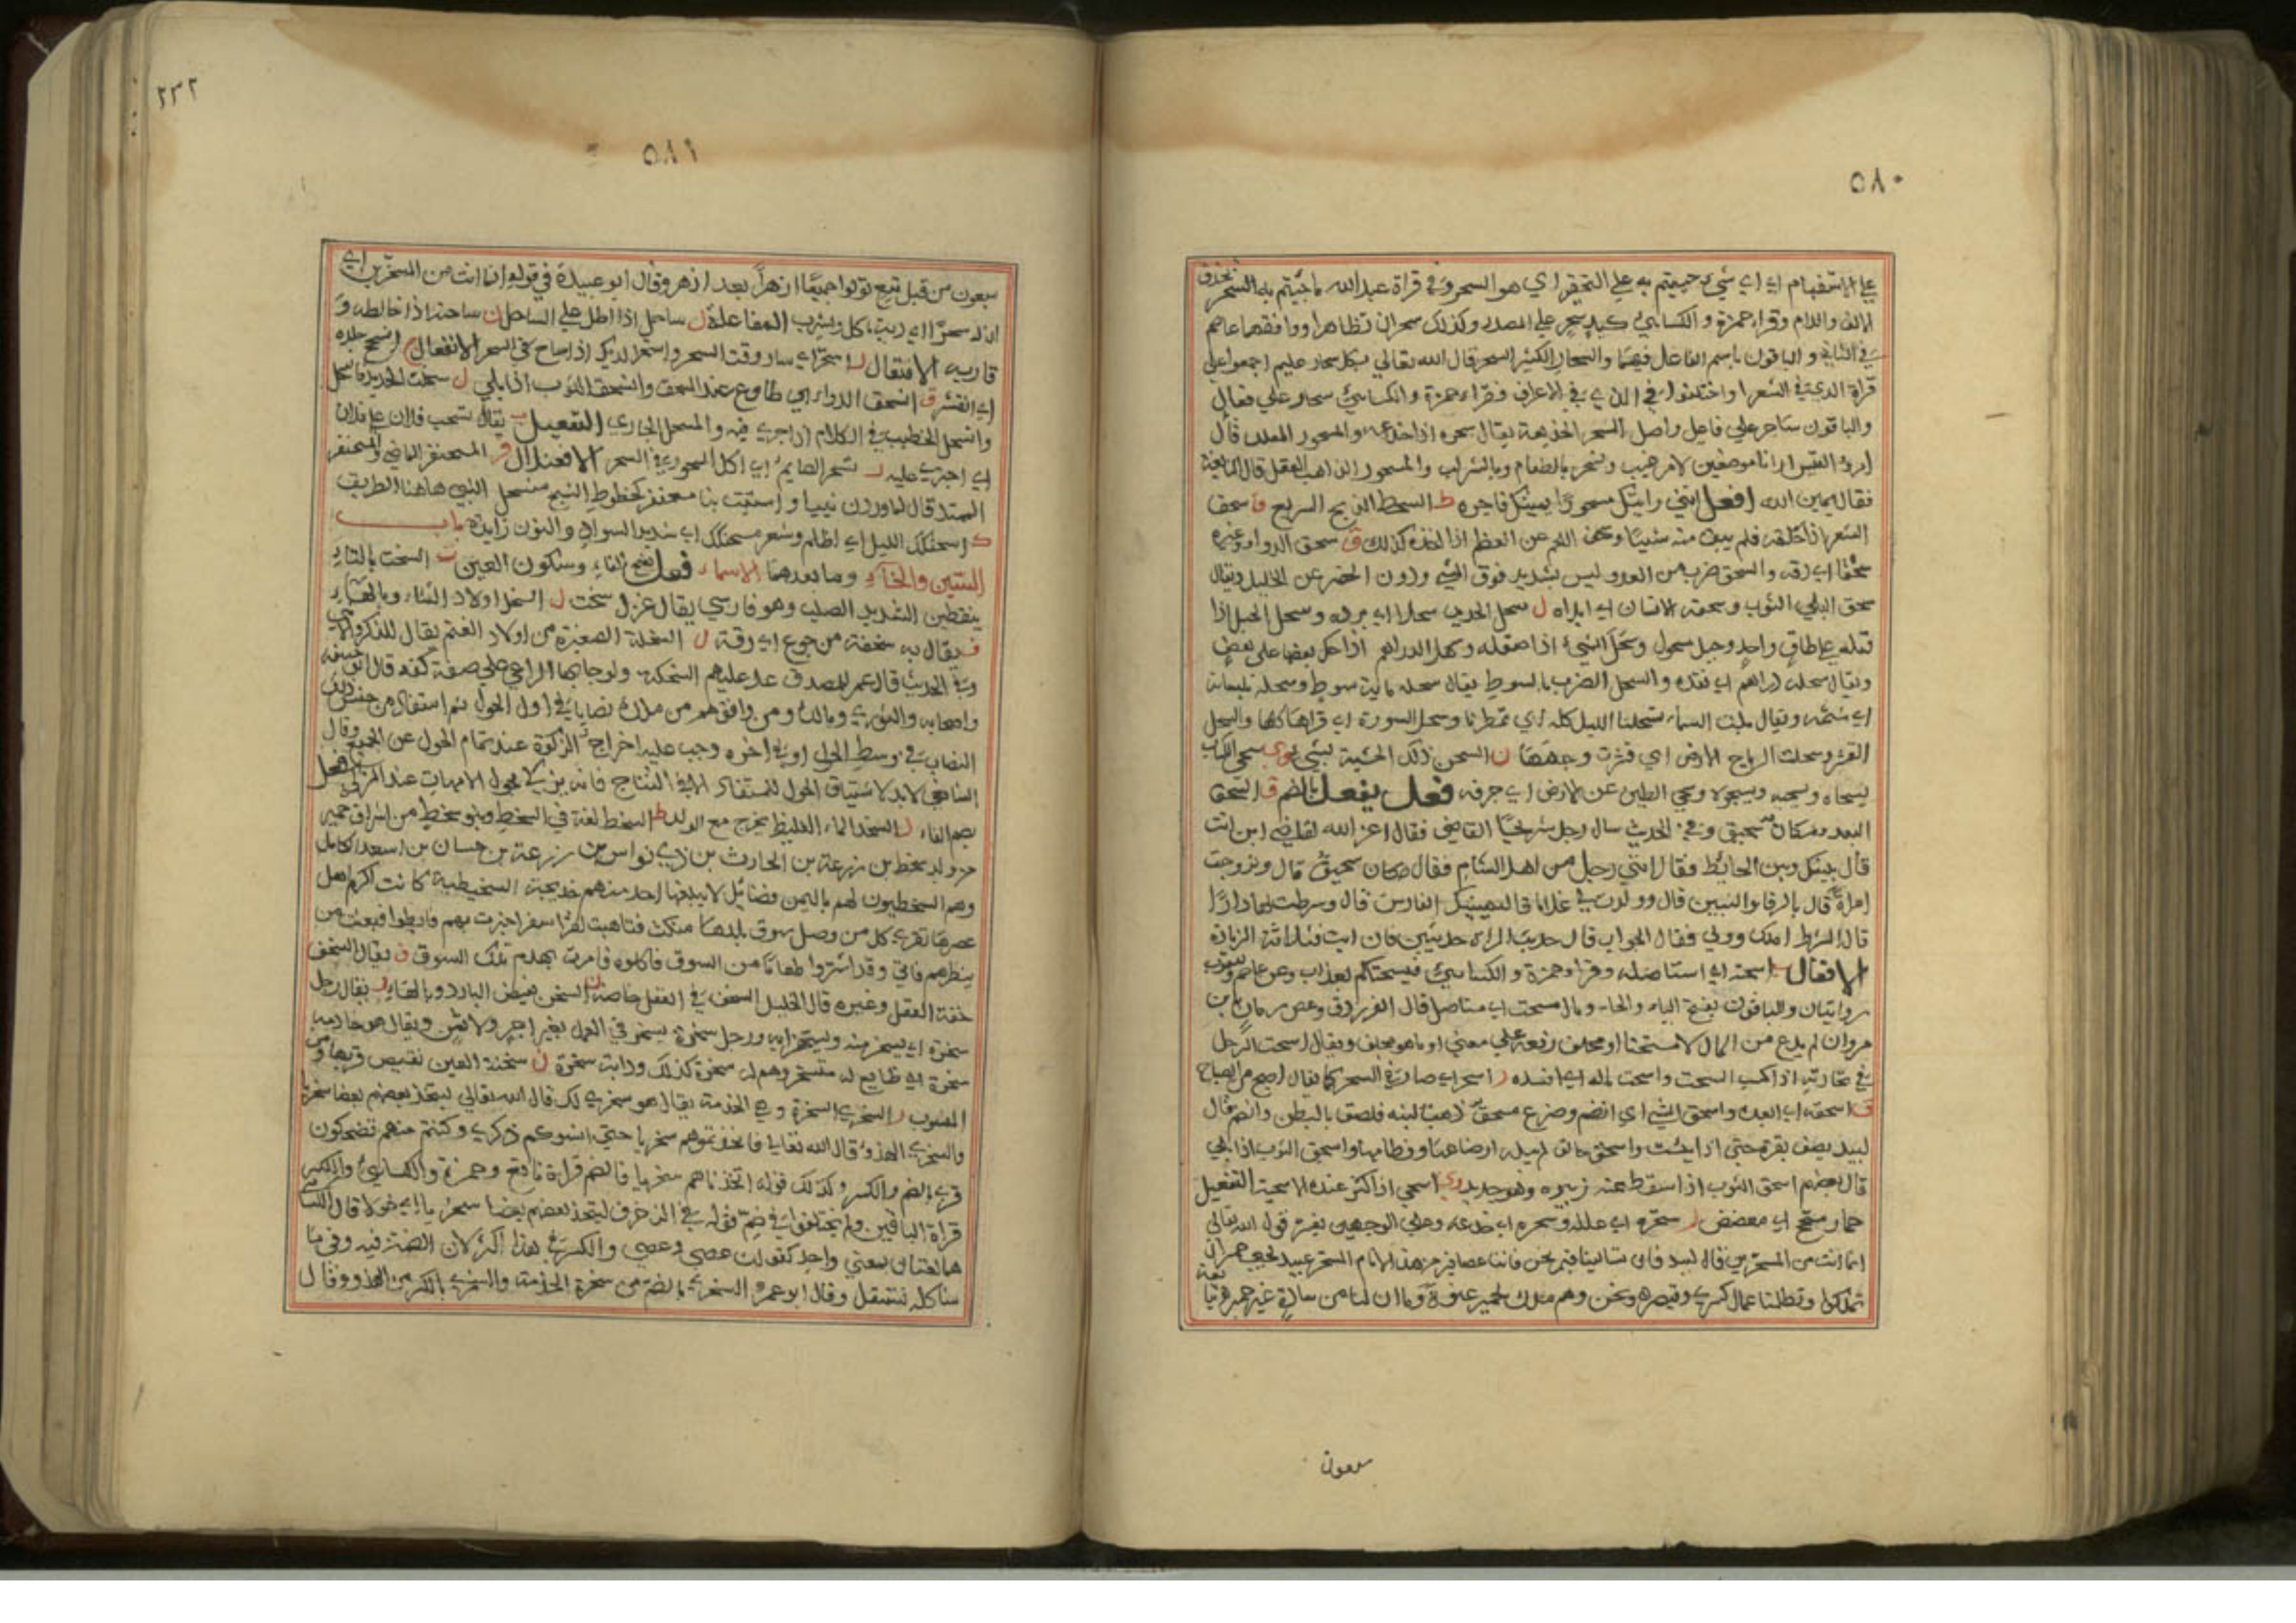 ٥٨٠
علي الاستفهام اي اي شيء جيتم به علي التحقير اي هو السحر وفي قراة عبد الله ما جيتم به السحر بحذف
الالف واللام وقراء حمزة والكسائي كيد سحر علي المصدر وكذلك سحران تظاهرا ووافقهما عاصم
في الثاني والباقون باسم الفاعل فيهما والسحار الكثير السحر قال الله تعالي بكل سحار عليم اجمعوا علي
قراة الذي في الشعرا واختلفوا في الذي في الاعراف فقراء حمزة والكسائي سحار علي فعال
والباقون ساحر علي فاعل واصل السحر الخديعة يقال سحره اذا خدعه والمسحور المعلل قال
امرؤ القيس ارانا موضعين لامر غيب ونسحر بالطعام وبالشراب والمسحور الذاهب العقل قال النابغة
فقال يمين الله افعل انني رايتك مسحورا يمينك فاجره ط السحط الذبح السريع ف سحف
الشعر اذا حلقه فلم يبق منه شيئا وسحف اللحم عن العظم اذا اخذه كذلك ق سحق الدواء وغيره
سحقا اي دقه والسحق ضرب من العدو ليس بشديد فوق المشي ودون الحضر عن الخليل ويقال
سحق البلي الثوب وسحقه الانسان اي ابلاه ل سحل الحديد سحلا اي برده وسحل الحبل اذا
فتله علي طاق واحد وحبل مسحول وسحل الشيء اذا صقله وسحل الدراهم اذا حك بعضها علي بعض
ويقال سحله دراهم اي نقده والسحل الضرب بالسوط يقال سحله مائة سوط وسحله بلسانه
اي شتمه ويقال باتت السماء تسحلنا الليل كله اي تمطرنا وسحل السورة اي قراها كلها والسحل
القشر وسحلت الرياح الارض اي قشرت وجهها ن السحن دلك الخشبة بشيء سحي الكتاب
يسحاه ويسحيه ويسحوه وسحي الطين عن الارض اي جرفه فعل يفعل بالضم ق السحق
البعد ومكان سحيق وفي الحديث سال رجل شريحا القاضي فقال اعز الله القاضي اين انت
قال بينك وبين الحايط فقال انني رجل من اهل الشام فقال مكان سحيق قال وتزوجت
امراة قال بالرفا والبنين قال وولدت لي غلاما قال ليهنيك الفارس قال وشرطت لها دارا
قال الشرط املك وولي فقال الجواب قال حديث امراة حديثين فان ابت فثلاثة الزيادة
الافعال اسحته اي استاصله وقراء حمزة والكسائي فيسحتكم بعذاب وعن عاصم ويعقوب
روايتان والباقون بفتح الياء والحاء ومال مسحت اي مستاصل قال الفرزدق وعض زمان يا بن
مروان لم يدع من المال الا مسحتا او مجلف رفعه علي معني او ما هو مجلف ويقال اسحت الرجل
في تجارته اذا اكسب السحت واسحت ماله اي افسده ر اسحر اي صار في السحر كما يقال اصبح من الصباح
ق اسحقه اي ابعده واسحق الشي اي انضم وضرع مسحق ذهب لبنه فلصق بالبطن وانضم قال
لبيد يصف بقرة حتي اذا يئست واسحق حالق لم يبله ارضاعها وفطامها واسحق الثوب اذا بلي
قال بعضهم اسحق الثوب اذا سقط عنه زئبره وهو جديد اسحي اذا كثر عنده الاسحية التفعيل
حمار مسحج اي معضض ر سحره اي علله وسحره اي خدعه وعلي الوجهين يفسر قول الله تعالي
انما انت من المسحرين قال لبيد فان تسالينا فيم نحن فاننا عصافير من هذا الانام المسحر
تملكوا وتظلنا عمال كسري وقيصر ونحن وهم ملك لحمير عنوة وما ان لنا من سادة غير حمير
سبعون
٢٣٢
٥٨١
سبعون من قبل تبع تولوا جميعا ازهرا بعد ازهر وقال ابو عبيدة في قوله انما انت من المسحرين اي
ان له سحرا اي رية ياكل ويشرب المفاعلة ل ساحل اذا اطل علي الساحل ن ساحنه اذا خالطه و
قاربه الافتعال ر استحر اي سار وقت السحر واستحر الديك اذا صاح في السحر الانفعال ج انسحج جلده
اي انقشر ق انسحق الدواء اي طاوع عند السحق وانسحق الثوب اذا بلي ل سحلت الحديد فانسحل
وانسحل الخطيب في الكلام اذا جري فيه والمسحل الجاري التفعيل ب يقال تسحب فلان علي فلان
اي اجترء عليه ر تسحر الصايم اي اكل السحور في السحر الافعنلال ف المسحنفر الماضي والمسحنفر
الممتد قال لما وردن نبيا واستتب بنا مسحنفر كخطوط النسج منسحل النبي هاهنا الطريق
ك اسحنكك الليل اي اظلم وشعر مسحنكك اي شديد السواد والنون زايدة باب
السين والخاء وما بعدهما الاسماء فعل بفتح الفاء وسكون العين ت السخت بالتاء
بنقطتين الشديد الصلب وهو فارسي يقال غزل سخت ل السخل اولاد الشاء وبالهاء
ف يقال به سخفة من جوع اي رقة ل السخلة الصغيرة من اولاد الغنم يقال للذكر والانثي
وفي الحديث قال عمر للمصدق عد عليهم السخلة ولو جابها الراعي علي كفه قال ابو حنيفة
واصحابه والثوري ومالك ومن وافقهم من ملك نصابا في اول الحول ثم استفاد من جنس ذلك
النصاب في وسط الحول او في اخره وجب عليه اخراج الزكوة عند تمام الحول عن الجميع وقال
الشافعي لابد لاستيناف الحول للمستفاد الا في النتاج فانه يزكي لحول الامهات عند المزكي فعل
بضم الفاء السخد الماء الغليظ يخرج مع الولد ط السخط لغة في السخط وبنو سخط من اشراف حمير
من ولد سخط بن زرعة بن الحارث بن ذي نواس بن زرعة بن حسان بن اسعد الكامل
وهم السخطيون لهم باليمن فضايل لا يبلغها احد منهم خديجة السخيطية كانت اكرم اهل
عصرها تقري كل من وصل سوق بلدها
ينظرهم فاتي وقد اشتروا طعاما من السوق فاكلوه فامرت بهدم تلك السوق ف يقال السخف
خفة العقل وغيره قال الخليل السخف في العقل خاصة ن السخن نقيض البارد وبالهاء ر يقال رجل
سخرة اي يسخر منه ويستهزا به ورجل سخرة يسخر في العمل بغير اجر ولا ثمن ويقال هو خادمه
سخرة اي طايع له متسخر وهم له سخرة كذلك ودابة سخرة ن سخنة العين نقيض قرتها ومن
المنسوب ر السخري السخرة وهي الخدمة يقال هو سخري لك قال الله تعالي ليتخذ بعضهم بعضا سخريا
والسخري الهزؤ قال الله تعالي فاتخذتموهم سخريا حتي انسوكم ذكري وكنتم منهم تضحكون
قري بالضم والكسر وكذلك قوله اتخذناهم سخريا فالضم قراة نافع وحمزة والكسائي والكسر
قراة الباقين ولم يختلفوا في ضم قوله في الزخرف ليتخذ بعضهم بعضا سخريا اي خولا قال الكسائي
هما لغتان بمعني واحد كقولك عصي وعصي والكسر في هذا اكثر لان الضمة فيه وفي ما
شاكله تستثقل وقال ابو عمرو السخري بالضم من سخرة الخدمة والسخري بالكسر من الهزو وقال